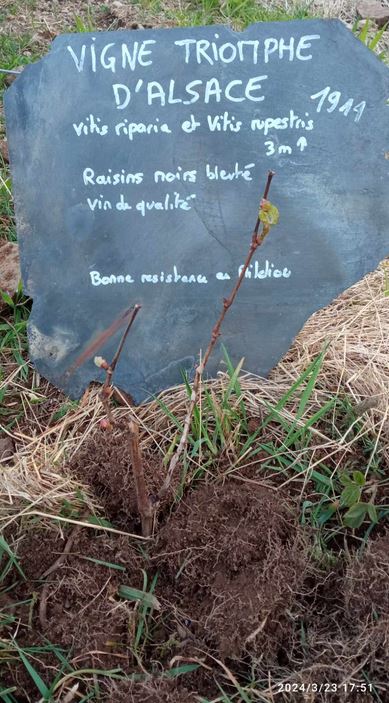 VIGNE TRIOMPHE
D'ALSACE
1911
Vitis riparia et Vitis rupestris
3m ↑
Raisins noirs bleuté
Vin de qualité
Bonne resistance au Mildiou
2024/3/23 17:51